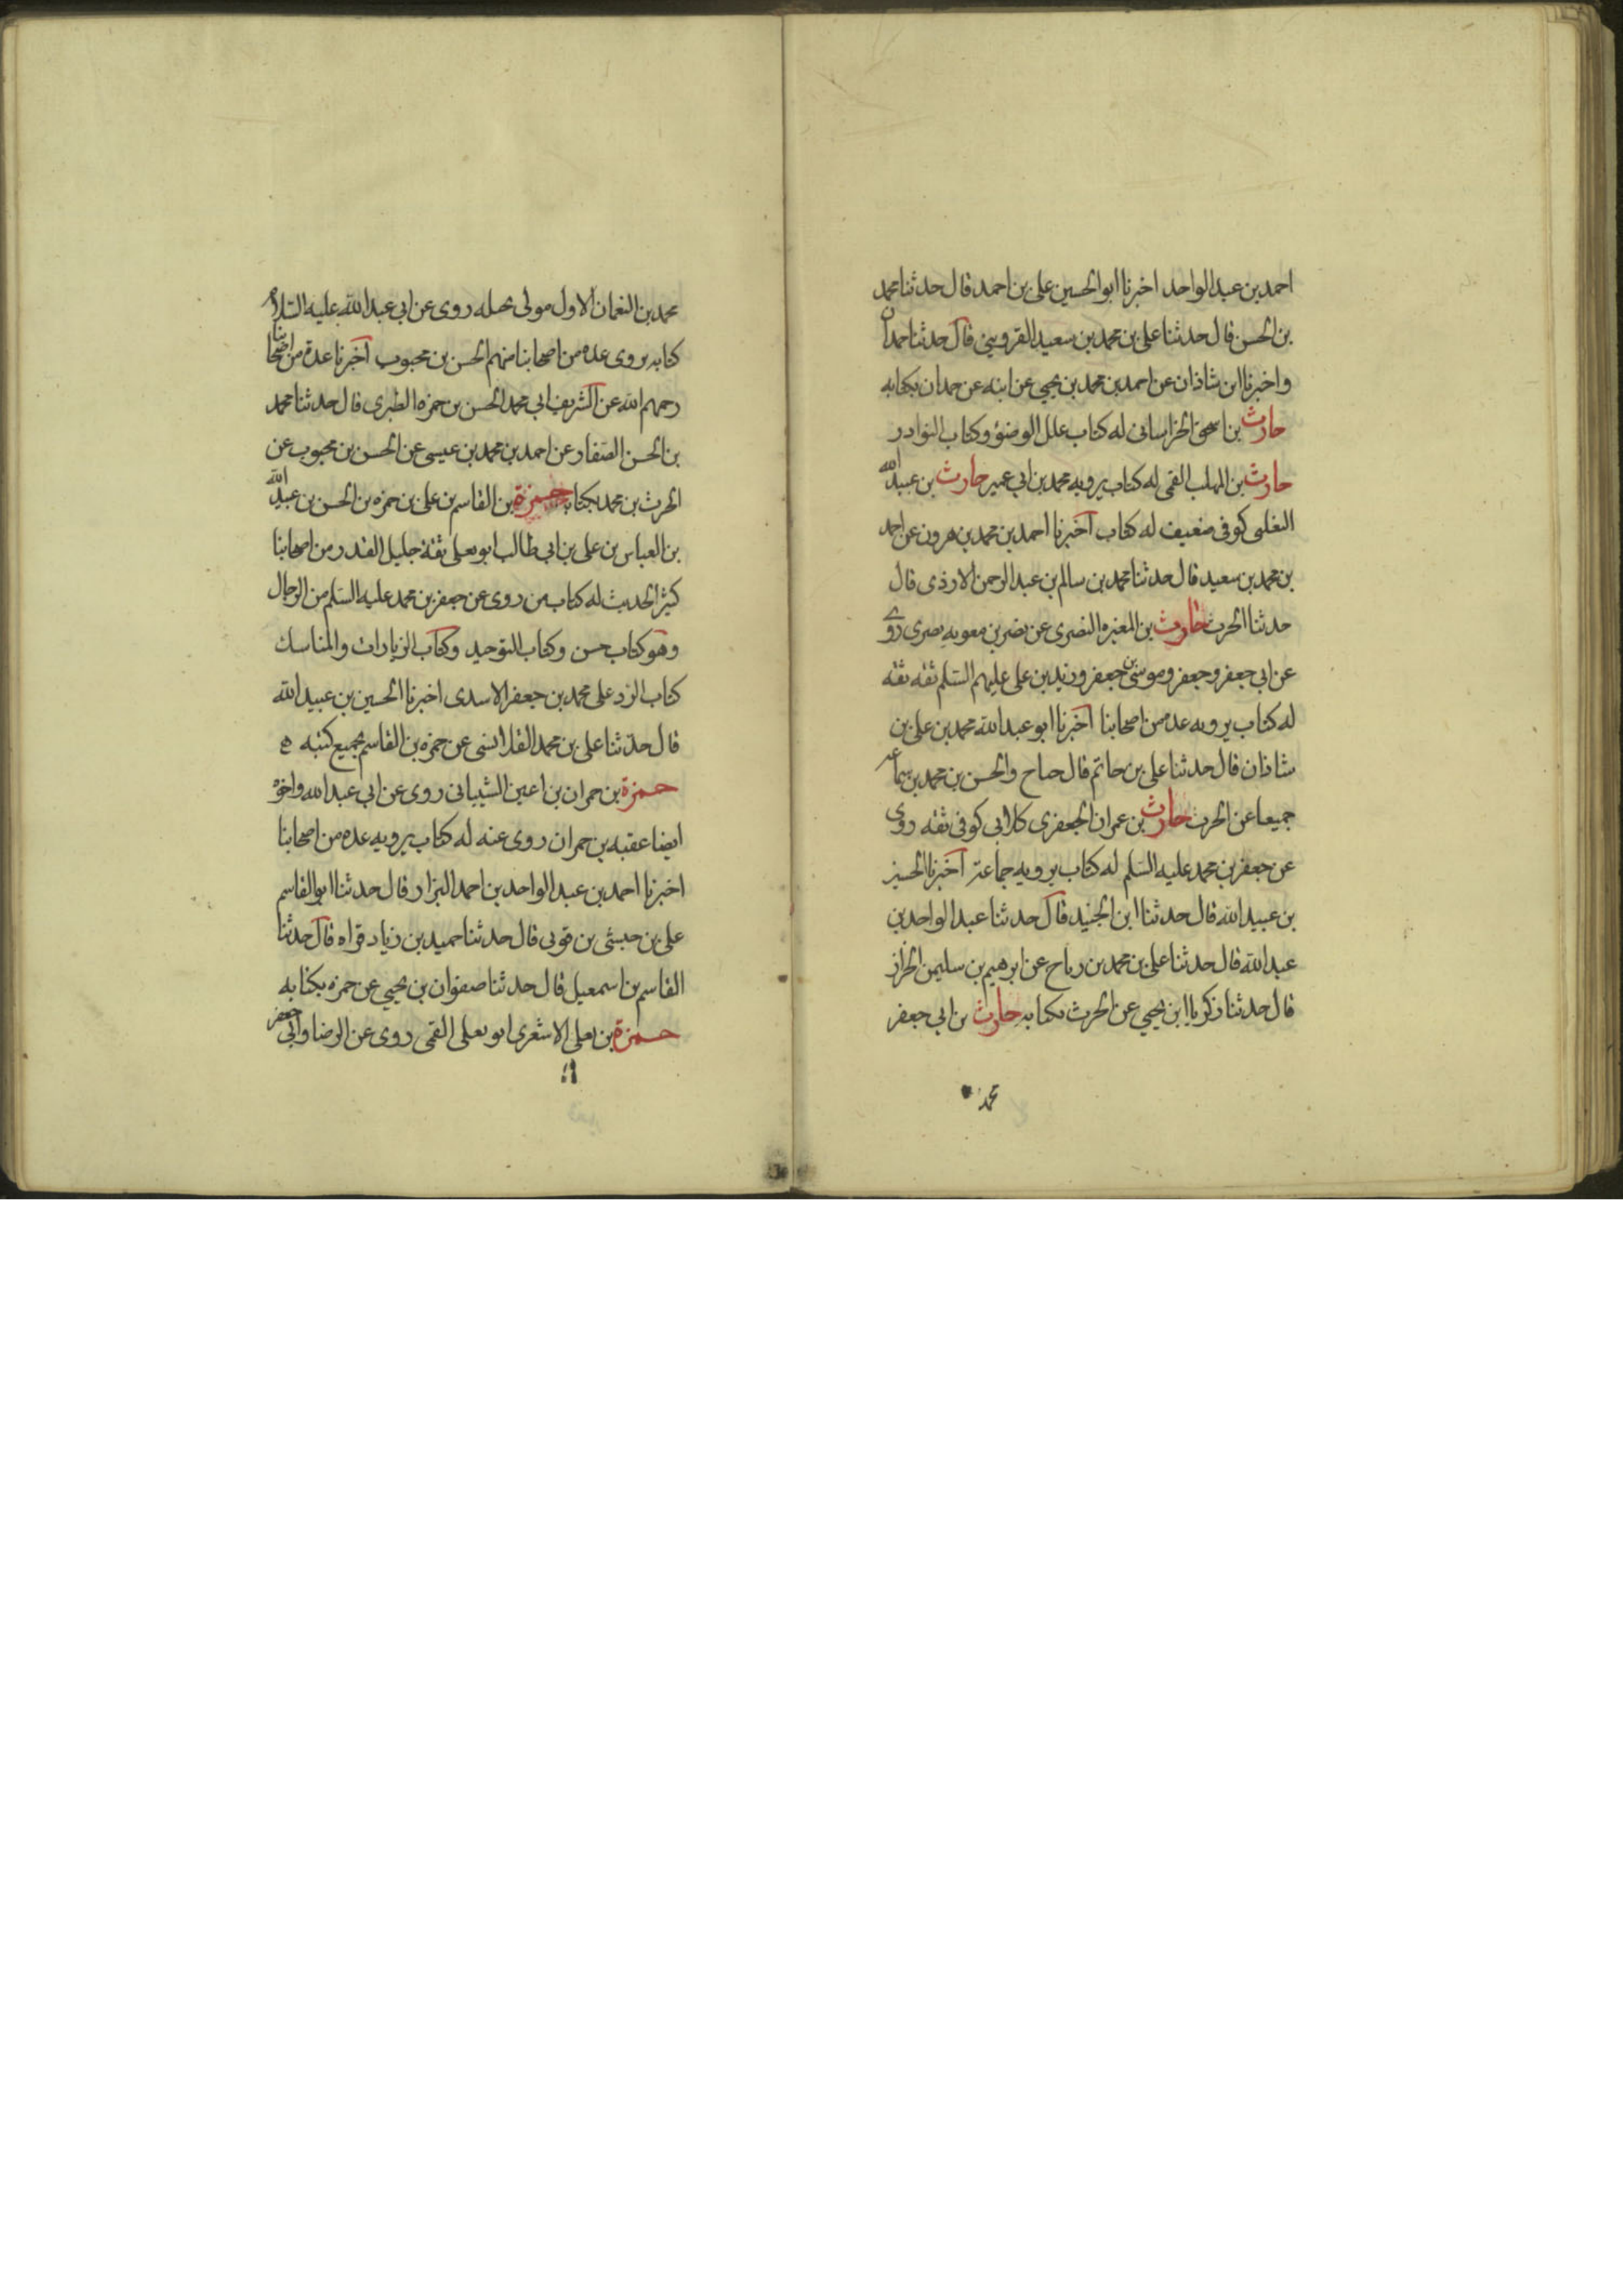 احمد بن عبد الواحد اخبرنا ابو الحسين علي بن احمد قال حدثنا محمد
بن الحسن قال حدثنا علي بن محمد بن سعيد القزويني قال حدثنا حمدان
واخبرنا ابن شاذان عن احمد بن محمد بن يحيى عن ابنه عن حمدان بكتابه
حارث بن اسحق الخراساني له كتاب علل الوضوء وكتاب النوادر
حارث بن المهلب القمي له كتاب يرويه محمد بن ابي عمير حارث بن عبيد الله
التغلبي كوفي ضعيف له كتاب اخبرنا احمد بن محمد بن هرون عن احمد
بن محمد بن سعيد قال حدثنا محمد بن سالم بن عبد الرحمن الازدي قال
حدثنا الحرث حارث بن المغيره النصري عن نصر بن معويه بصري روى
عن ابي جعفر وجعفر وموسى بن جعفر وزيد بن علي عليهم السلم ثقه ثقه
له كتاب يرويه عده من اصحابنا اخبرنا ابو عبد الله محمد بن علي بن
شاذان قال حدثنا علي بن حاتم قال حباح والحسن بن محمد بن سماعه
جميعا عن الحرث حارث بن عمران الجعفري كلابي كوفي ثقه روى
عن جعفر بن محمد عليه السلم له كتاب يرويه جماعة اخبرنا الحسين
بن عبيد الله قال حدثنا ابن الجنيد قال حدثنا عبد الواحد بن
عبد الله قال حدثنا علي بن محمد بن رباح عن ابرهيم بن سليمن الخزاز
قال حدثنا زكريا ابن يحيى عن الحرث بكتابه حارث بن ابي جعفر
محمد
محمد بن النعمان الاول مولى بجيله روى عن ابي عبد الله عليه السلام
كتابه يروى عده من اصحابنا منهم الحسن بن محبوب اخبرنا عدة من اصحابنا
رحمهم الله عن الشريف ابي محمد الحسن بن حمزه الطبري قال حدثنا محمد
بن الحسن الصفار عن احمد بن محمد بن عيسى عن الحسن بن محبوب عن
الحرث بن محمد بكتابه حمزة بن القاسم بن علي بن حمزه بن الحسن بن عبيد الله
بن العباس بن علي بن ابي طالب ابو يعلى ثقة جليل القدر من اصحابنا
كثير الحديث له كتاب من روى عن جعفر بن محمد عليه السلم من الرجال
وهو كتاب حسن وكتاب التوحيد وكتاب الزيارات والمناسك
كتاب الرد على محمد بن جعفر الاسدي اخبرنا الحسين بن عبيد الله
قال حدثنا علي بن محمد القلانسي عن حمزه بن القاسم بجميع كتبه ه
حمزة بن حمران بن اعين الشيباني روى عن ابي عبد الله واخوه
ايضا عقبه بن حمران روى عنه له كتاب يرويه عده من اصحابنا
اخبرنا احمد بن عبد الواحد بن احمد البزاز قال حدثنا ابو القاسم
علي بن حبشي بن قوني قال حدثنا حميد بن زياد قراه قال حدثنا
القاسم بن اسمعيل قال حدثنا صفوان بن يحيى عن حمزه بكتابه
حمزة بن يعلى الاشعري ابو يعلى القمي روى عن الرضا وابي جعفر